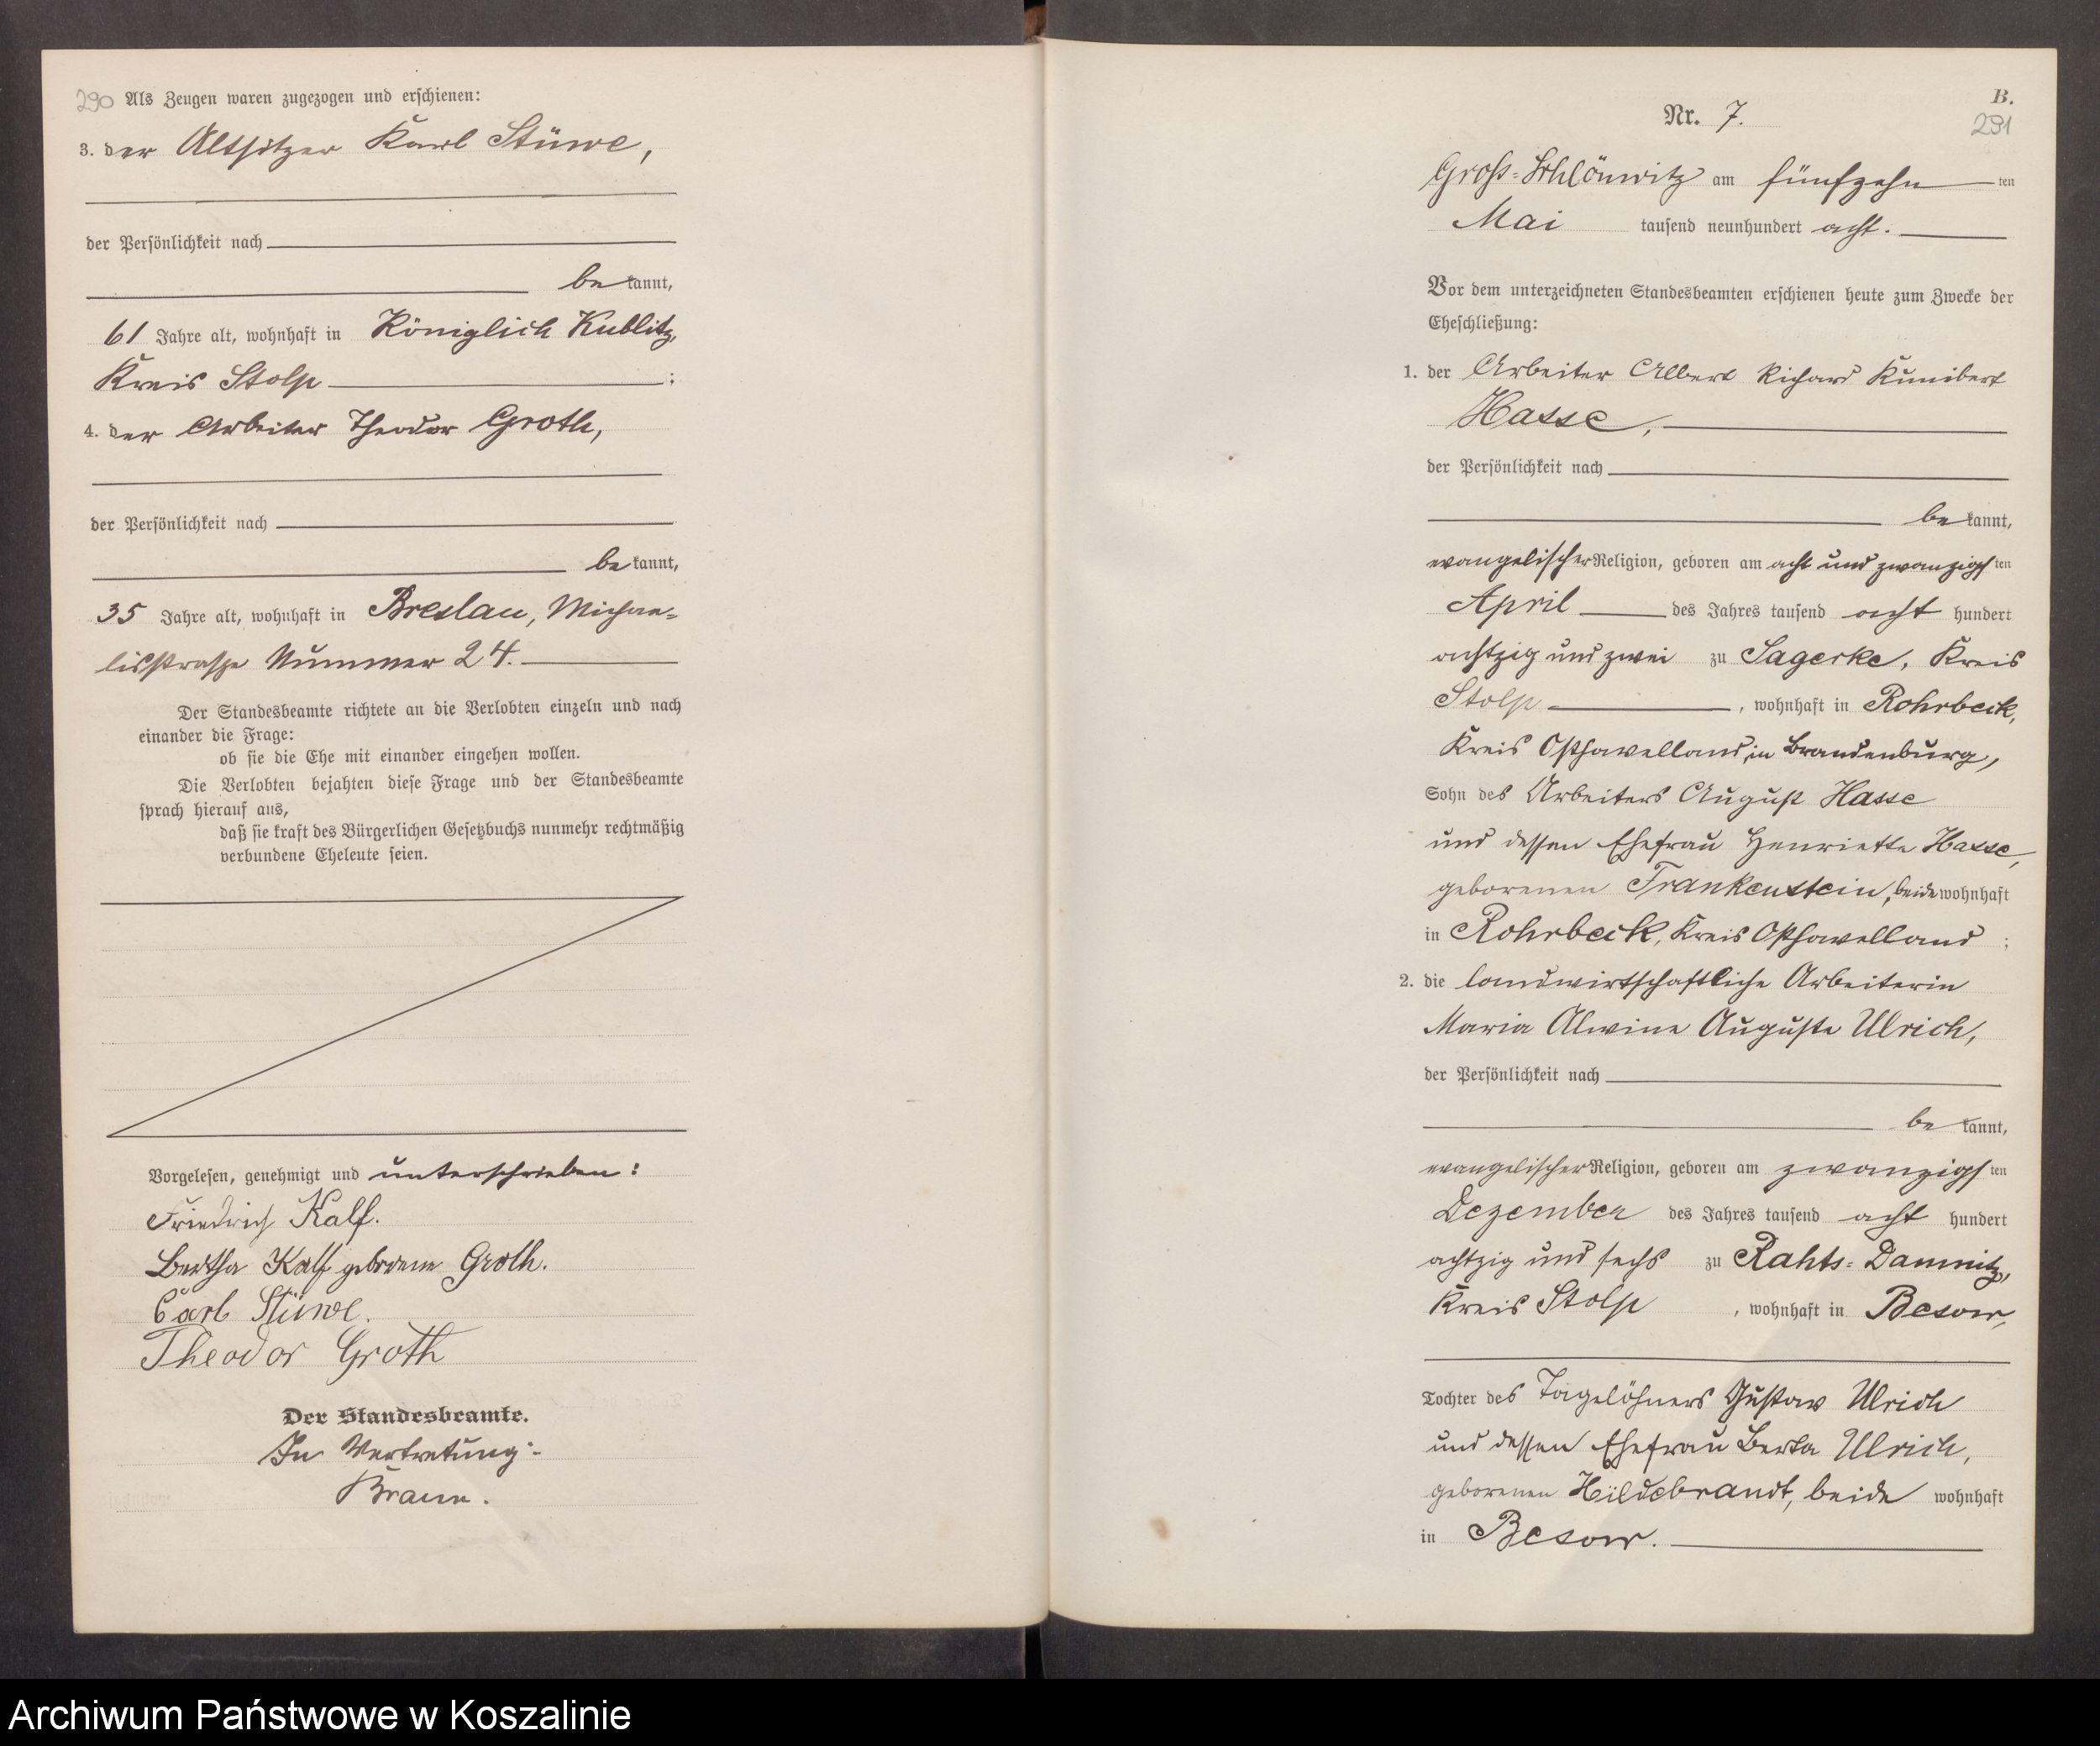 290 Als Zeugen waren zugezogen und erschienen:
3. der Altsitzer Karl Stüwe,
der Persönlichkeit nach
bekannt,
61 Jahre alt, wohnhaft in Königlich Kublitz,
Kreis Stolp ;
4. der Arbeiter Theodor Groth,
der Persönlichkeit nach
bekannt,
35 Jahre alt, wohnhaft in Breslau, Michae-
lisstrasse Nummer 24.
Der Standesbeamte richtete an die Verlobten einzeln und nach
einander die Frage:
ob sie die Ehe mit einander eingehen wollen.
Die Verlobten bejahten diese Frage und der Standesbeamte
sprach hierauf aus,
daß sie kraft des Bürgerlichen Gesetzbuchs nunmehr rechtmäßig
verbundene Eheleute seien.
Vorgelesen, genehmigt und unterschrieben:
Friedrich Kalf.
Bertha Kalf geborene Groth.
Carl Stüwe.
Theodor Groth
Der Standesbeamte.
In Vertretung:
Braun.
B.
Nr. 7.
291
Groß-Schlönwitz am fünfzehnten
Mai tausend neunhundert acht.
Vor dem unterzeichneten Standesbeamten erschienen heute zum Zwecke der
Eheschließung:
1. der Arbeiter Albert Richard Kunibert
Hasse,
der Persönlichkeit nach
bekannt,
evangelischer Religion, geboren am acht und zwanzigsten
April des Jahres tausend acht hundert
achtzig und zwei zu Sagerke, Kreis
Stolp , wohnhaft in Rohrbeck,
Kreis Osthavelland, in Brandenburg,
Sohn des Arbeiters August Hasse
und dessen Ehefrau Henriette Hasse,
geborenen Frankenstein, beide wohnhaft
in Rohrbeck, Kreis Osthavelland ;
2. die landwirtschaftliche Arbeiterin
Maria Alwine Auguste Ulrich,
der Persönlichkeit nach
bekannt,
evangelischer Religion, geboren am zwanzigsten
Dezember des Jahres tausend acht hundert
achtzig und sechs zu Rahts-Damnitz,
Kreis Stolp , wohnhaft in Besow,
Tochter des Tagelöhners Gustav Ulrich
und dessen Ehefrau Berta Ulrich,
geborenen Hildebrandt, beide wohnhaft
in Besow.
Archiwum Państwowe w Koszalinie